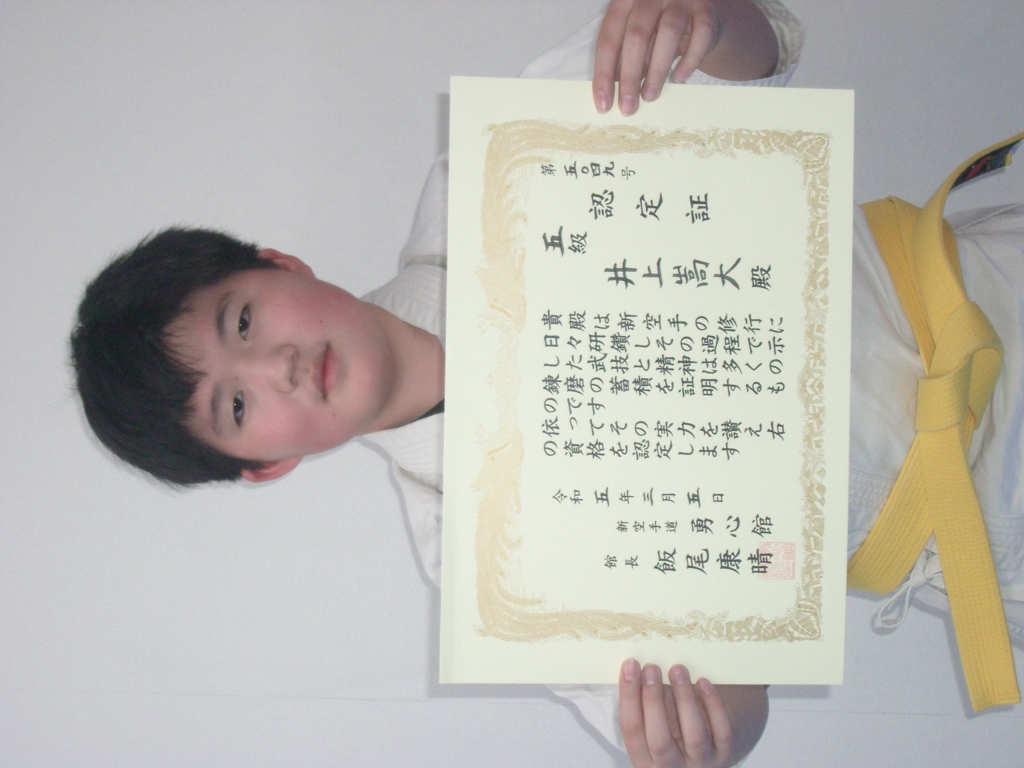 第五〇四九号
認定証
五級
井上嵩大殿
貴殿は新空手の修行に
日々研鑽しその過程で示
した武技と精神は多くの
錬磨の蓄積を証明するも
のです
依ってその実力を讃え右
の資格を認定します
令和五年三月五日
新空手道勇心館
館長飯尾康晴